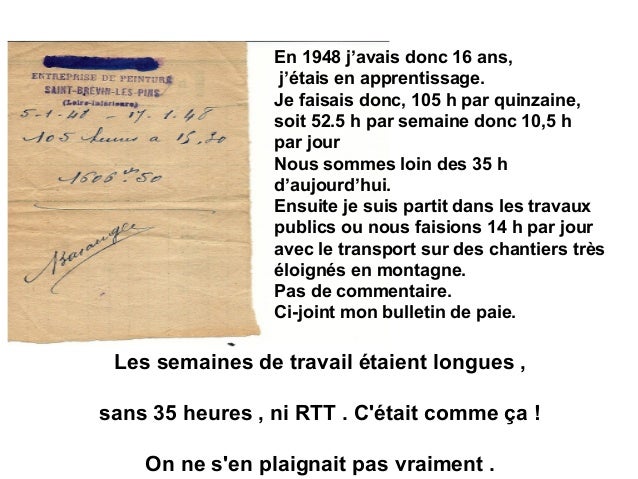 ENTREPRISE DE PEINTURE
SAINT-BREVIN-LES-PINS
(Loire-Inférieure)
5-1-48 - 17-1-48
105 heures a 15,30
1606 50
En 1948 j’avais donc 16 ans,
j’étais en apprentissage.
Je faisais donc, 105 h par quinzaine,
soit 52.5 h par semaine donc 10,5 h
par jour
Nous sommes loin des 35 h
d’aujourd’hui.
Ensuite je suis partit dans les travaux
publics ou nous faisions 14 h par jour
avec le transport sur des chantiers très
éloignés en montagne.
Pas de commentaire.
Ci-joint mon bulletin de paie.
Les semaines de travail étaient longues ,
sans 35 heures , ni RTT . C'était comme ça !
On ne s'en plaignait pas vraiment .